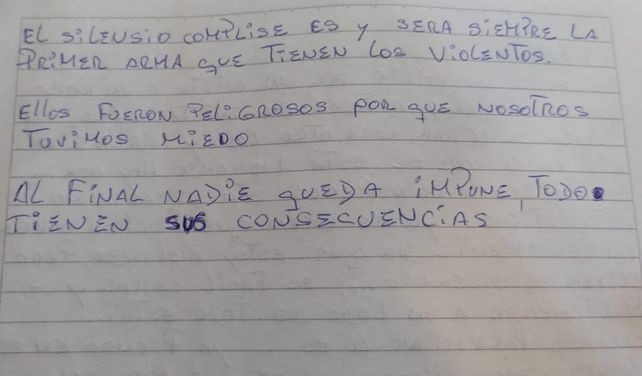 EL SiLENSiO COMPLiSE ES y SERA SiEMPRE LA
PRiMER ARMA QUE TiENEN LOS ViOLENTOS.
Ellos FUERON PELiGROSOS POR QUE NOSOTROS
TUViMOS MiEDO
AL FiNAL NADiE QUEDA iMPUNE, TODOS
TiENEN SUS CONSECUENCiAS